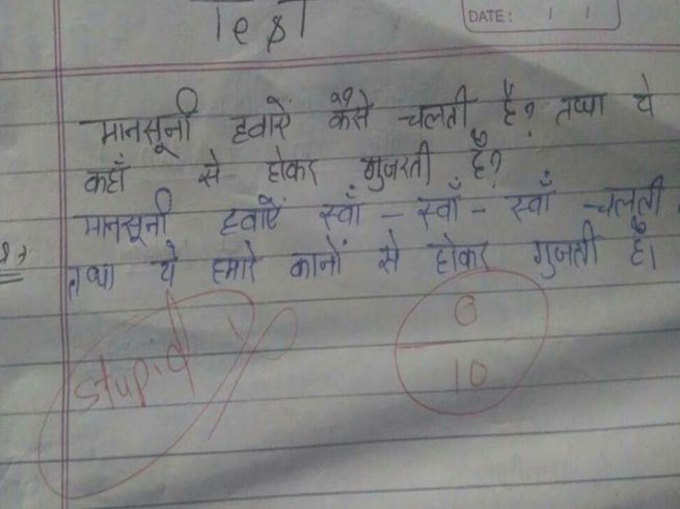 Test
DATE: / /
मानसूनी हवाऐं कैसे चलती है? तथा ये
कहाँ से होकर गुजरती है?
मानसूनी हवाऐं स्वाँ - स्वाँ - स्वाँ चलती
तथा ये हमारे कानों से होकर गुजती है।
Stupid
0
10